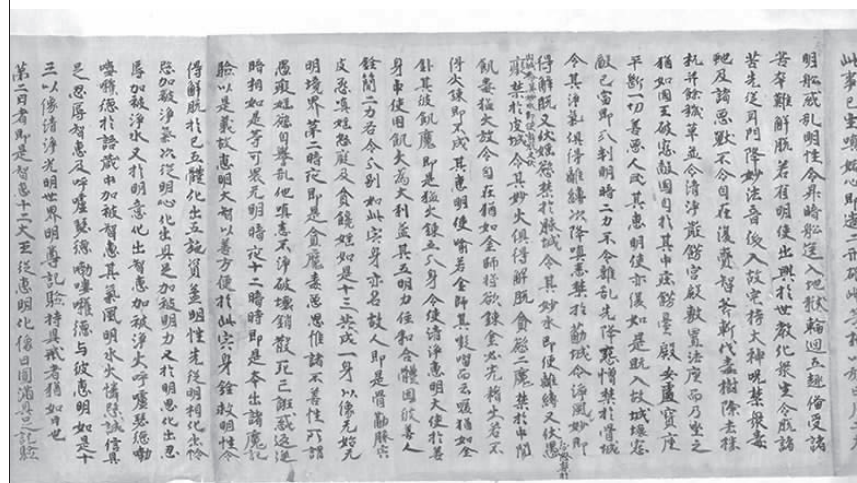 明船威亂明性令昇暗船送入地獄輪迴五趣備受諸
苦卒難解脫若有明使出興於世教化衆生令脫諸
苦先從耳門降妙法音後入故宅持大神呪禁衆毒
虵及諸惡獸不令自在復賫智斧斬伐毒樹除去株
杌并餘穢草並令清淨嚴飾宮殿敷置法座而乃坐之
猶如國王破怨敵國自於其中莊飾臺殿安處寶座
平斷一切善惡人民其惠明使亦復如是既入故城壞怨
敵已當即分判明暗二力不令雜亂先降怨憎禁於骨城
令其淨氣俱得離縛次降嗔恚禁於筋城令淨妙風即
得解脫又伏婬慾禁於脉城令其妙水即便離縛又伏愚
癡禁於皮城令其妙火俱得解脫貪慾二魔禁於中間
飢毒猛火放令自在猶如金師將欲鍊金必先藉火若不
得火鍊即不成其惠明使喻若金師其嘍而云暖猶如金
鉚其彼飢魔即是猛火鍊五分身令使清淨惠明大使於善
身中使用飢火為大利益其五明力住和合體因彼善人
銓簡二力各令分別如此宍身亦名故人即是骨筋脉宍
皮怨嗔婬怒癡及貪饞婬如是十三共成一身以像无始无
明境界第二暗夜即是貪魔毒惡思惟諸不善性所謂
愚癡婬慾自譽亂他嗔恚不淨破壞銷散死亡誑惑返逆
暗相如是等可畏无明暗夜十二暗時即是本出諸魔記
驗以是義故惠明大智以善方便於此宍身銓救明性令
得解脫於己五體化出五施資益明性先從明相化出怜
愍加被淨氣次從明心化出具足加被明力又於明思化出忍
辱加被淨水又於明意化出智惠加被淨火呼嚧瑟德嘞
嚧嚩德於語藏中加被智惠其氣風明水火憐愍誠信具
足忍辱智惠及呼嚧瑟德嘞嚧嚩德与彼惠明如是十
三以像清淨光明世界明尊記驗持具戒者猶如日也
第二日者即是智惠十二大王從惠明化像日圓滿具足記驗